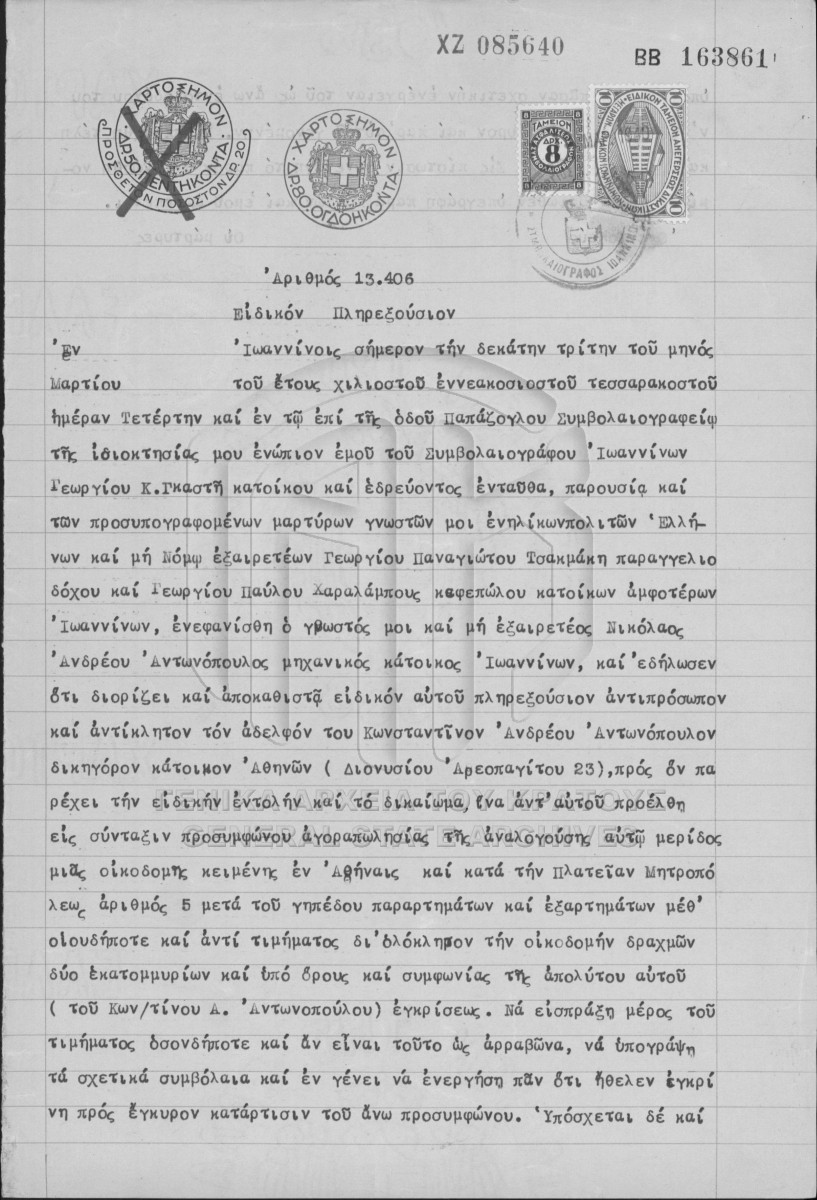 ΧΖ 085640
ΒΒ 163861
ΧΑΡΤΟΣΗΜΟΝ
ΔΡ. 50. ΠΕΝΤΗΚΟΝΤΑ
ΠΡΟΣΘΕΤΟΝ ΠΟΣΟΣΤΟΝ ΔΡ. 20
ΧΑΡΤΟΣΗΜΟΝ
ΔΡ. 80. ΟΓΔΟΗΚΟΝΤΑ
ΤΑΜΕΙΟΝ
ΔΡΧ. 8
10 10
Ἀριθμός 13.406
Εἰδικόν Πληρεξούσιον
Ἐν Ἰωαννίνοις σήμερον τήν δεκάτην τρίτην τοῦ μηνός
Μαρτίου τοῦ ἔτους χιλιοστοῦ ἐννεακοσιοστοῦ τεσσαρακοστοῦ
ἡμέραν Τετέρτην καί ἐν τῷ ἐπί τῆς ὁδοῦ Παπάζογλου Συμβολαιογραφείῳ
τῆς ἰδιοκτησίας μου ἐνώπιον ἐμοῦ τοῦ Συμβολαιογράφου Ἰωαννίνων
Γεωργίου Κ.Γκαστῆ κατοίκου καί ἑδρεύοντος ἐνταῦθα, παρουσίᾳ καί
τῶν προσυπογραφομένων μαρτύρων γνωστῶν μοι ἐνηλίκωνπολιτῶν Ἑλλή-
νων καί μή Νόμῳ ἐξαιρετέων Γεωργίου Παναγιώτου Τσακμάκη παραγγελιο
δόχου καί Γεωργίου Παύλου Χαραλάμπους καφεπώλου κατοίκων ἀμφοτέρων
Ἰωαννίνων, ἐνεφανίσθη ὁ γνωστός μοι καί μή ἐξαιρετέος Νικόλαος
Ἀνδρέου Ἀντωνόπουλος μηχανικός κάτοικος Ἰωαννίνων, καί ἐδήλωσεν
ὅτι διορίζει καί ἀποκαθιστᾷ εἰδικόν αὐτοῦ πληρεξούσιον ἀντιπρόσωπον
καί ἀντίκλητον τόν ἀδελφόν του Κωνσταντῖνον Ἀνδρέου Ἀντωνόπουλον
δικηγόρον κάτοικον Ἀθηνῶν ( Διονυσίου Ἀρεοπαγίτου 23),πρός ὅν πα
ρέχει τήν εἰδικήν ἐντολήν καί τό δικαίωμα, ἵνα ἀντ'αὐτοῦ προέλθη
εἰς σύνταξιν προσυμφώνου ἀγοραπωλησίας τῆς ἀναλογούσης αὐτῷ μερίδος
μιᾶς οἰκοδομῆς κειμένης ἐν Ἀθήναις καί κατά τήν Πλατεῖαν Μητροπό
λεως ἀριθμός 5 μετά τοῦ γηπέδου παραρτημάτων καί ἐξαρτημάτων μέθ'
οἱουδήποτε καί ἀντί τιμήματος δι'ὁλόκληρον τήν οἰκοδομήν δραχμῶν
δύο ἑκατομμυρίων καί ὑπό ὅρους καί συμφωνίας τῆς ἀπολύτου αὐτοῦ
( τοῦ Κων/τίνου Α. Ἀντωνοπούλου) ἐγκρίσεως. Νά εἰσπράξη μέρος τοῦ
τιμήματος ὁσονδήποτε καί ἄν εἶναι τοῦτο ὡς ἀρραβῶνα, νά ὑπογράψη
τά σχετικά συμβόλαια καί ἐν γένει νά ἐνεργήση πᾶν ὅτι ἤθελεν ἐγκρί
νη πρός ἔγκυρον κατάρτισιν τοῦ ἄνω προσυμφώνου. Ὑπόσχεται δέ καί
ΓΕΝΙΚΑ ΑΡΧΕΙΑ ΤΟΥ ΚΡΑΤΟΥΣ
GENERAL STATE ARCHIVES